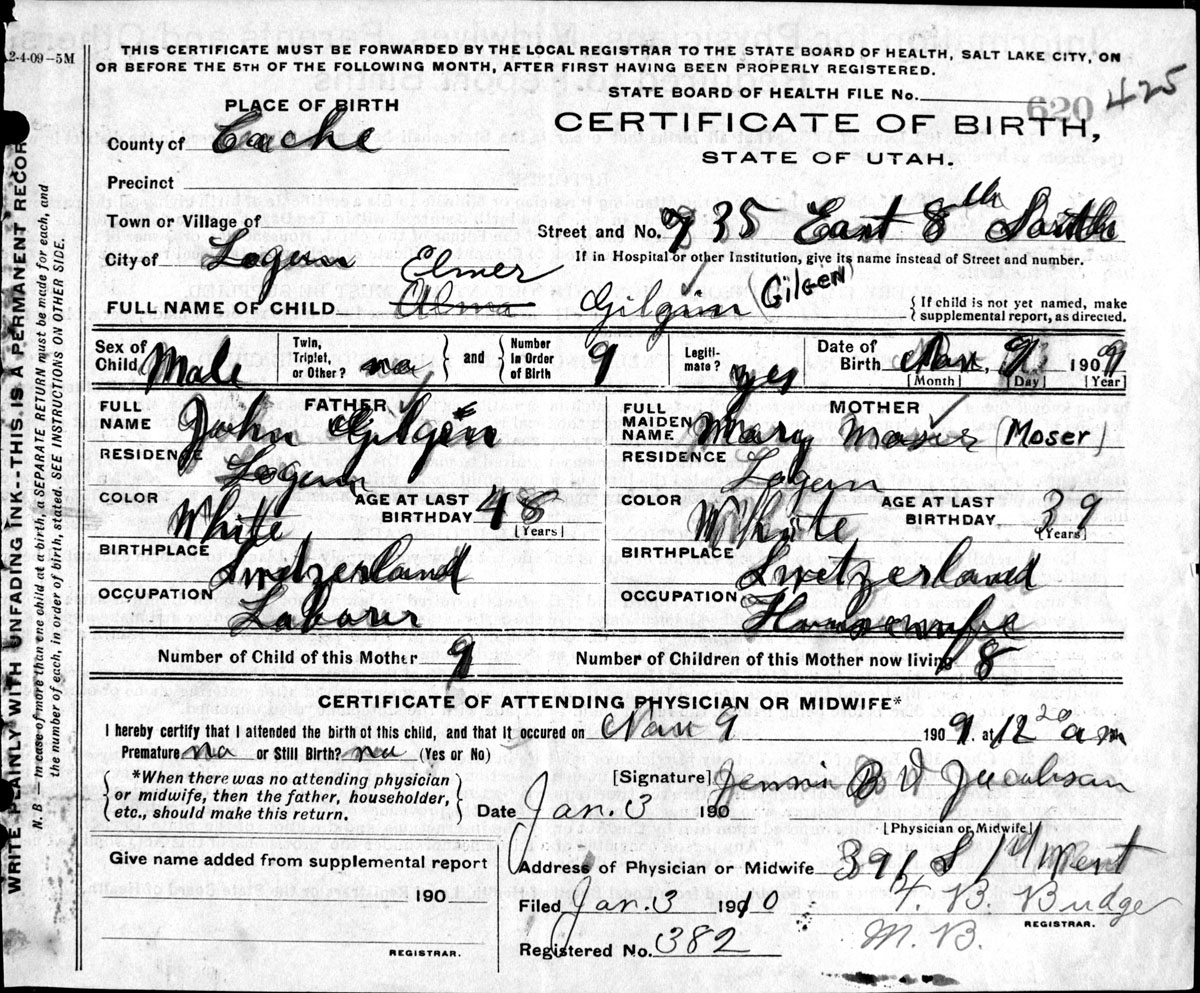 2-4-09-5M
THIS CERTIFICATE MUST BE FORWARDED BY THE LOCAL REGISTRAR TO THE STATE BOARD OF HEALTH, SALT LAKE CITY, ON
OR BEFORE THE 5TH OF THE FOLLOWING MONTH, AFTER FIRST HAVING BEEN PROPERLY REGISTERED.
STATE BOARD OF HEALTH FILE No. 620 425
PLACE OF BIRTH
CERTIFICATE OF BIRTH,
STATE OF UTAH.
County of Cache
Precinct
Town or Village of
Street and No. 735 East 8th South
City of Logan
If in Hospital or other Institution, give its name instead of Street and number.
Elmer
FULL NAME OF CHILD Alma Gilgin (Gilgen)
{ If child is not yet named, make
supplemental report, as directed.
Sex of Child Male
Twin, Triplet, or Other? no } and { Number in Order of Birth 9
Legitimate? yes
Date of Birth Nov, 9 1909
[Month] [Day] [Year]
FATHER
FULL NAME John Gilgin
RESIDENCE Logan
COLOR White
AGE AT LAST BIRTHDAY 48 [Years]
BIRTHPLACE Swetzerland
OCCUPATION Laborer
MOTHER
FULL MAIDEN NAME Mary Moser (Moser)
RESIDENCE Logan
COLOR White
AGE AT LAST BIRTHDAY 39 [Years]
BIRTHPLACE Swetzerland
OCCUPATION Housewife
Number of Child of this Mother 9
Number of Children of this Mother now living 8
CERTIFICATE OF ATTENDING PHYSICIAN OR MIDWIFE*
I hereby certify that I attended the birth of this child, and that it occured on Nov 9 1909. at 12 20 a m
Premature no or Still Birth? no (Yes or No)
{ *When there was no attending physician
or midwife, then the father, householder,
etc., should make this return. }
[Signature] B Jacobson
Date Jan. 3 190
[Physician or Midwife]
Give name added from supplemental report
190
REGISTRAR.
Address of Physician or Midwife 391 S 1st West
Filed Jan. 3 1910
F. B. Budge
REGISTRAR.
M. B.
Registered No. 382
WRITE PLAINLY WITH UNFADING INK--THIS IS A PERMANENT RECORD
N. B.—In case of more than one child at birth, a SEPARATE RETURN must be made for each, and
the number of each, in order of birth, stated. SEE INSTRUCTIONS ON OTHER SIDE.